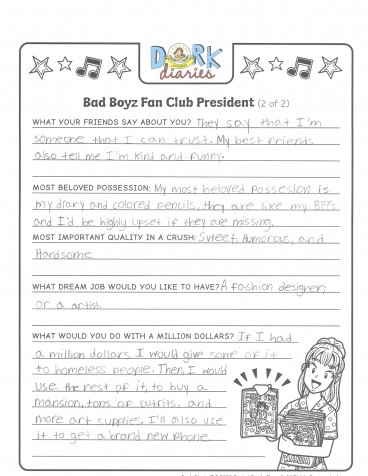 DORK
diaries
Bad Boyz Fan Club President (2 of 2)
WHAT YOUR FRIENDS SAY ABOUT YOU? They say that I'm
someone that I can trust. My best friends
also tell me I'm kind and funny.
MOST BELOVED POSSESSION: My most beloved possesion is
my diary and colored pencils, they are like my BFFs
and I'd be highly upset if they are missing.
MOST IMPORTANT QUALITY IN A CRUSH: Sweet, Humorous, and
Handsome
WHAT DREAM JOB WOULD YOU LIKE TO HAVE? A fashion designer,
or a artist.
WHAT WOULD YOU DO WITH A MILLION DOLLARS? If I had
a million dollars, I would give some of it
to homeless people. Then, I would
use the rest of it, to buy a
mansion, tons of outfits, and
more art supplies. I'll also use
it to get a brand new phone.